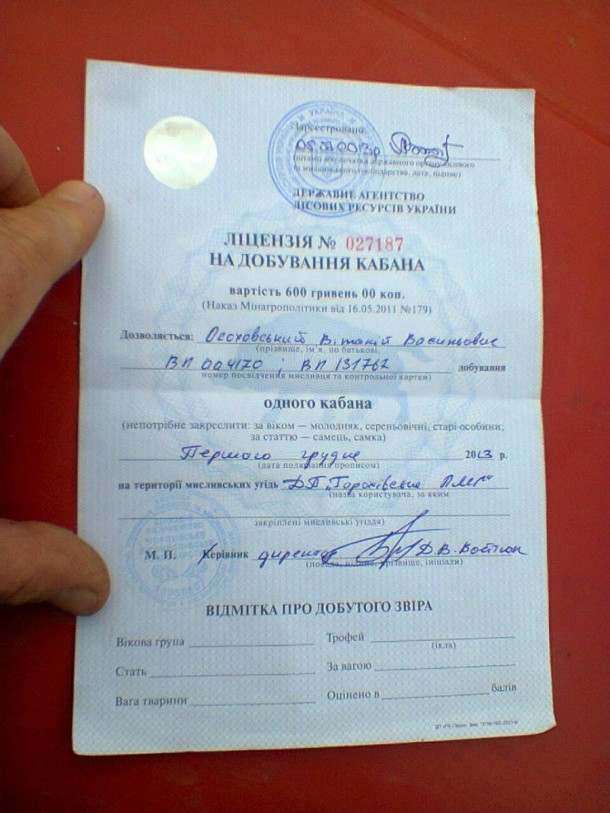 УКРАЇНА
Зареєстровано
ДЕРЖАВНЕ АГЕНТСТВО
ЛІСОВИХ РЕСУРСІВ УКРАЇНИ
ЛІЦЕНЗІЯ № 027187
НА ДОБУВАННЯ КАБАНА
вартість 600 гривень 00 коп.
(Наказ Мінагрополітики від 16.05.2011 №179)
Дозволяється: Осоховський Віталій Васильович
(прізвище, ім'я, по батькові,
ВП 004170 ; ВП 131762 добування
номер посвідчення мисливця та контрольної картки)
одного кабана
(непотрібне закреслити: за віком — молодняк, сереньовічні, старі особини;
за статтю — самець, самка)
Першого грудня 2013 р.
(дата полювання прописом)
на території мисливських угідь ДП „Горохівське ЛМГ"
(назва користувача, за яким
закріплені мисливські угіддя)
М. П. Керівник директор Д.В. Костюк
(посада, підпис, прізвище, ініціали)
ВІДМІТКА ПРО ДОБУТОГО ЗВІРА
Вікова група Трофей
(ікла)
Стать За вагою
Вага тварини Оцінено в балів